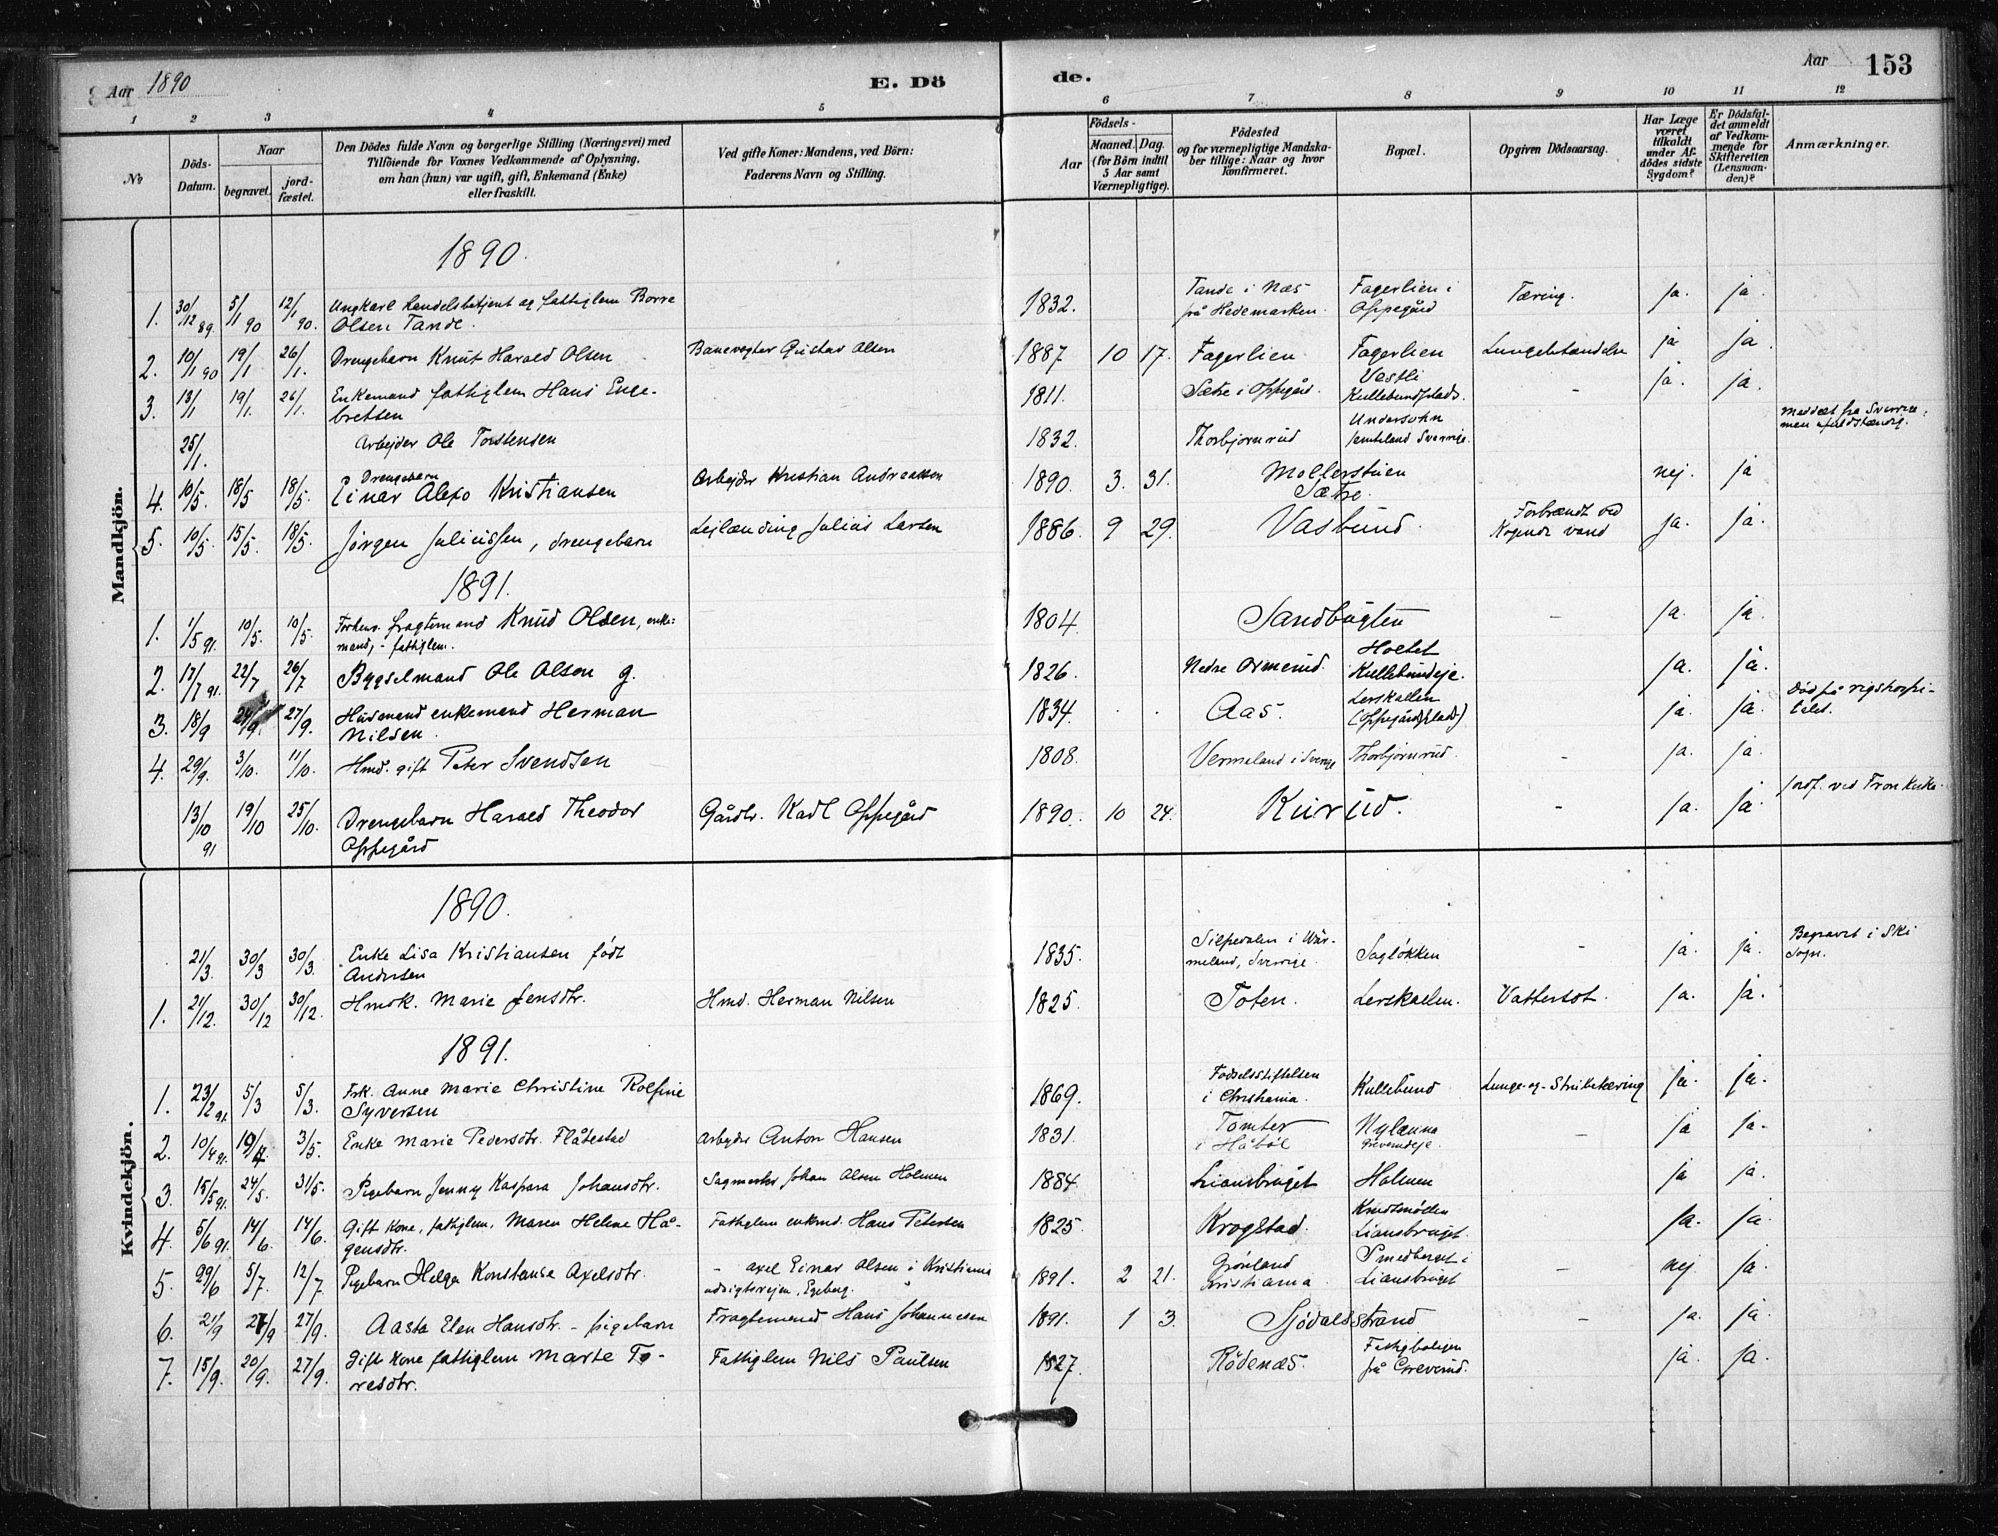 Aar 1890
E. Dö
de.
Aar
153
1 2 3 4 5 6 7 8 9 10 11 12
№
Döds-
Datum.
Naar
begravet.
jord-
fæstet.
Den Dödes fulde Navn og borgerlige Stilling (Næringsvei) med
Tilföiende for Voxnes Vedkommende af Oplysning,
om han (hun) var ugift, gift, Enkemand (Enke)
eller fraskilt.
Ved gifte Koner: Mandens, ved Börn:
Faderens Navn og Stilling.
Födsels-
Aar
Maaned. Dag.
(for Börn indtil
5 Aar samt
Værnepligtige).
Födested
og for værnepligtige Mandska-
ber tillige: Naar og hvor
konfirmeret.
Bopæl.
Opgiven Dödsaarsag.
Har Læge
været
tilkaldt
under Af-
dödes sidste
Sygdom?
Er Dödsfal-
det anmeldt
af Vedkom-
mende for
Skifteretten
(Lensman-
den)?
Anmærkninger.
Mandkjön.
1890.
1. 30/12 89. 5/1 90 12/1 90. Ungkarl handelsbetjent og fattiglem Borre 1832. Tande i Næs Fagerlien i Tæring. ja. ja.
Olsen Tande. på Hedemarken. Oppegård
2. 10/1 90 19/1 26/1. Drengebarn Knut Harald Olsen Banevogter Gustav Olsen 1887 10 17. Fagerlien. Fagerlien Lungebetændelse ja ja.
3. 13/1 19/1. 26/1. Enkemand fattiglem Hans Enge- 1811. Sætre i Oppegård. Vestli - ja. ja.
bretsen Kullebundplads.
25/1. Arbejder Ole Torstensen 1832. Thorbjørnrud Undersohn
Jemteland Sverrige. Meddelt fra Sverrige:
4. 10/5. 18/5 18/5. Drengebarn
Einar Alexo Kristiansen Arbejder Kristian Andreassen 1890. 3. 31. Mollerstuen nej. ja
Sætre.
5. 10/5. 15/5. 18/5. Jørgen Juliussen, drengebarn Lejlænding Julius Larsen 1886. 9 29. Vasbund. Forbrændt ved ja. ja.
Kogende vand
1891.
1. 1/5 91. 10/5. 10/5. Forhenv. fragtemand Knud Olsen, enke- 1804. Sandbugten - ja. ja.
mand, - fattiglem.
2. 17/7 91. 22/7 26/7 Bygselmand Ole Olson g. 1826. Nedre Ormerud. Holtet ja. ja.
Kullebundeje.
3. 18/9 24/9. 27/9. Husmand enkemand Herman 1834. . . Aas. Lerskallen ja. ja. Død på rigshospi-
Nilsen. (Oppegård plads) talet.
4. 29/9. 3/10. 11/10. Hmd. gift Peter Svendsen 1808. Vermeland i Sverige Thorbjørnrud. ja. ja.
13/10 91 19/10 25/10. Drengebarn Harald Theodor Gårdbr. Karl Oppegård 1890. 10 24. Kurud. - ja. ja. jordf. ved Fron Kirke.
Oppegård
Kvindekjön.
1890.
21/3. 30/3 30/3. Enke Lisa Kristiansen født 1835. i Vär- Sagløkken - ja. ja. Begravet i Ski
Andersen meland, Sverrige. Sogn.
1. 21/12. 30/12 30/12. Hmdk. Marie Jensdtr. Hmd. Herman Nilsen 1825. Toten. Lerskallen. Vattersot. ja. ja.
1891.
1. 23/2 91. 5/3 5/3. Frk. Anne Marie Christine Rolfine 1869. Fødselsstiftelsen Kullebund Lunge- og Strubetæring ja. ja.
Syversen i Christiania.
2. 10/4 91. 19/4. 3/5. Enke Marie Pedersdtr. Flåtestad Arbejder Anton Hansen 1831. Tomter Nylænna - ja ja.
i Håbøl Greverudeje.
3. 15/5 91. 24/5. 31/5. Pigebarn Jenny Kaspara Johansdtr. Sagmester Johan Olsen Holmen 1884. Liansbruget Holmen ja ja.
4. 5/6 91. 14/6 14/6. Gift Kone, fattiglem, Maren Helene Hå- Fattiglem enkmd. Hans Petersen 1825. Krogstad. Knudsmøllen ja. ja.
gensdtr. Liansbruget.
5. 29/6 5/7. 12/7. Pigebarn Helga Konstanse Axelsdtr. - Axel Einar Olsen i Kristiania 1891. 2 21. Grønland Smedberget i - nej ja.
udsigtsvejen, Egeberg. Kristiania. Liansbruget
6. 21/9 27/9 27/9. Aasta Elen Hansdtr. - pigebarn Fragtemand Hans Johannesen 1891. 1 3. Sjødalsstrand - ja. ja.
7. 15/9. 20/9. 27/9. Gift Kone fattiglem Marte To- Fattiglem Nils Paulsen 1827. Rödenæs. Fattigboligen ja. ja.
resdtr. på Greverud.